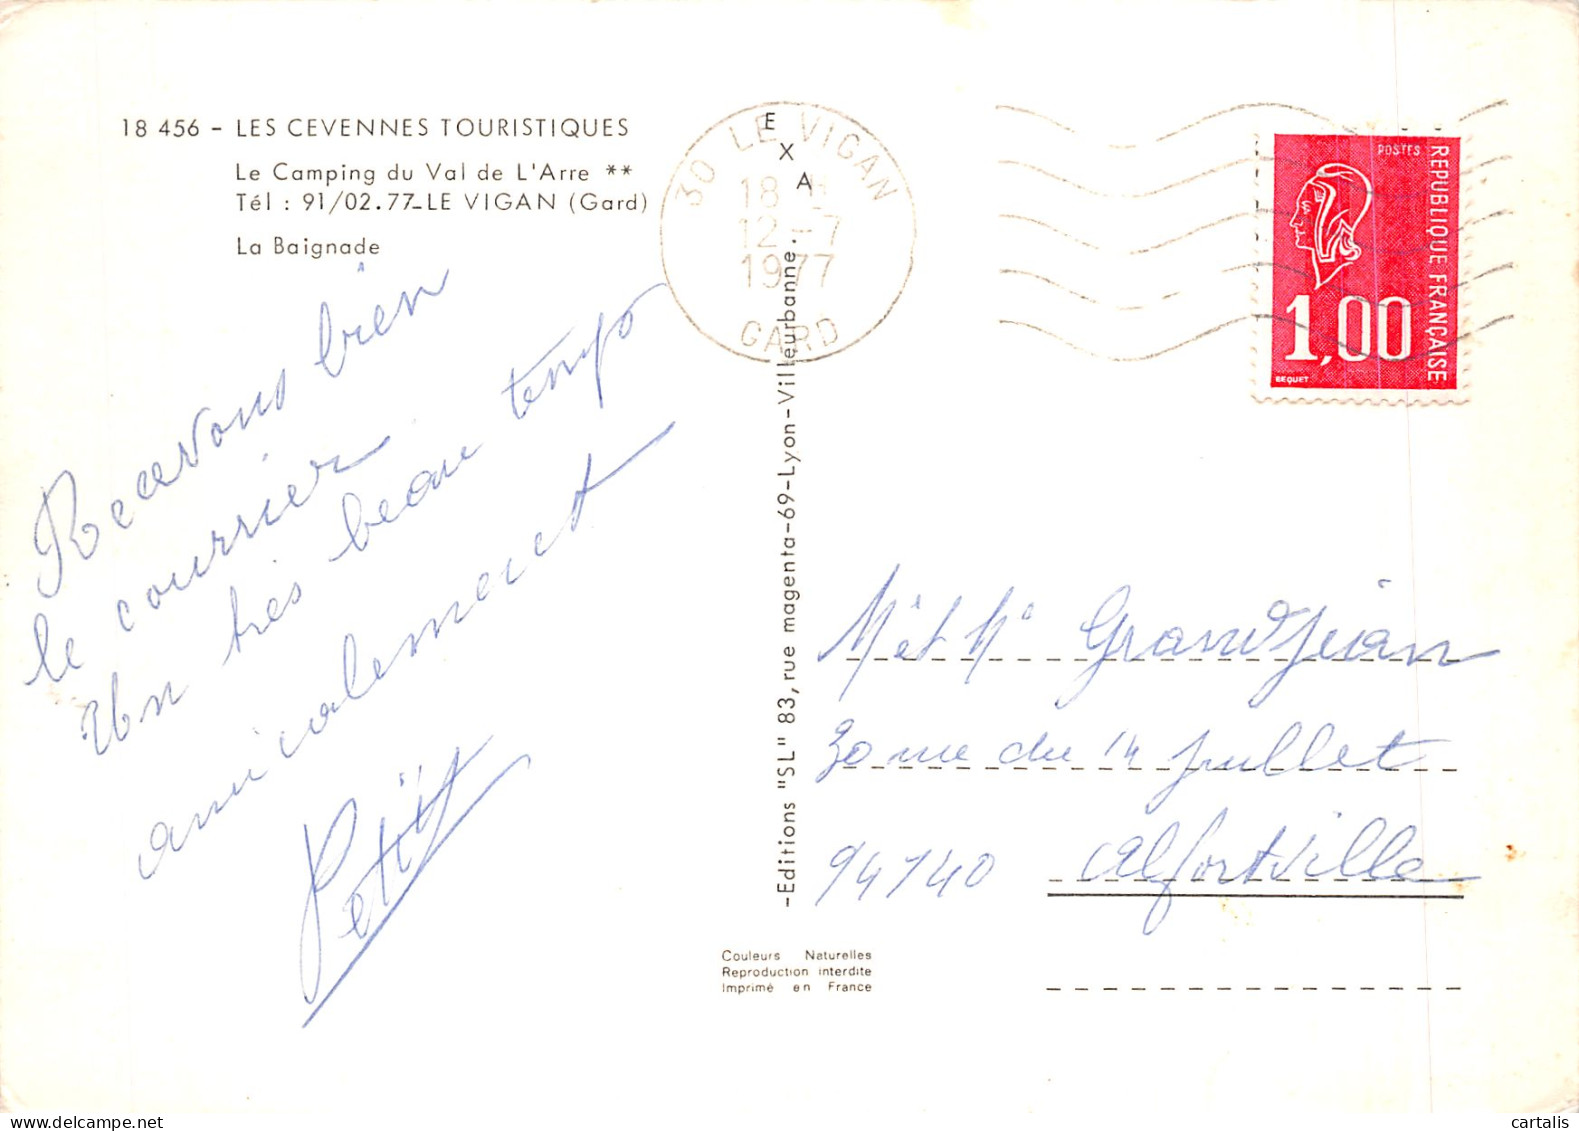 18 456 - LES CEVENNES TOURISTIQUES
Le Camping du Val de L'Arre **
Tél : 91/02.77-LE VIGAN (Gard)
La Baignade
Recevons bien
le courrier
Un très beau temps
amicalement
Petit
E
X
A
30 LE VIGAN
18 H
12 -7
1977
GARD
POSTES
REPUBLIQUE FRANÇAISE
1,00
BEQUET
-Editions "SL" 83, rue magenta-69-Lyon-Villeurbanne.
Mr et Me Grandjean
30 rue du 14 Juillet
94140 Alfortville
Couleurs Naturelles
Reproduction interdite
Imprimé en France
cartalis